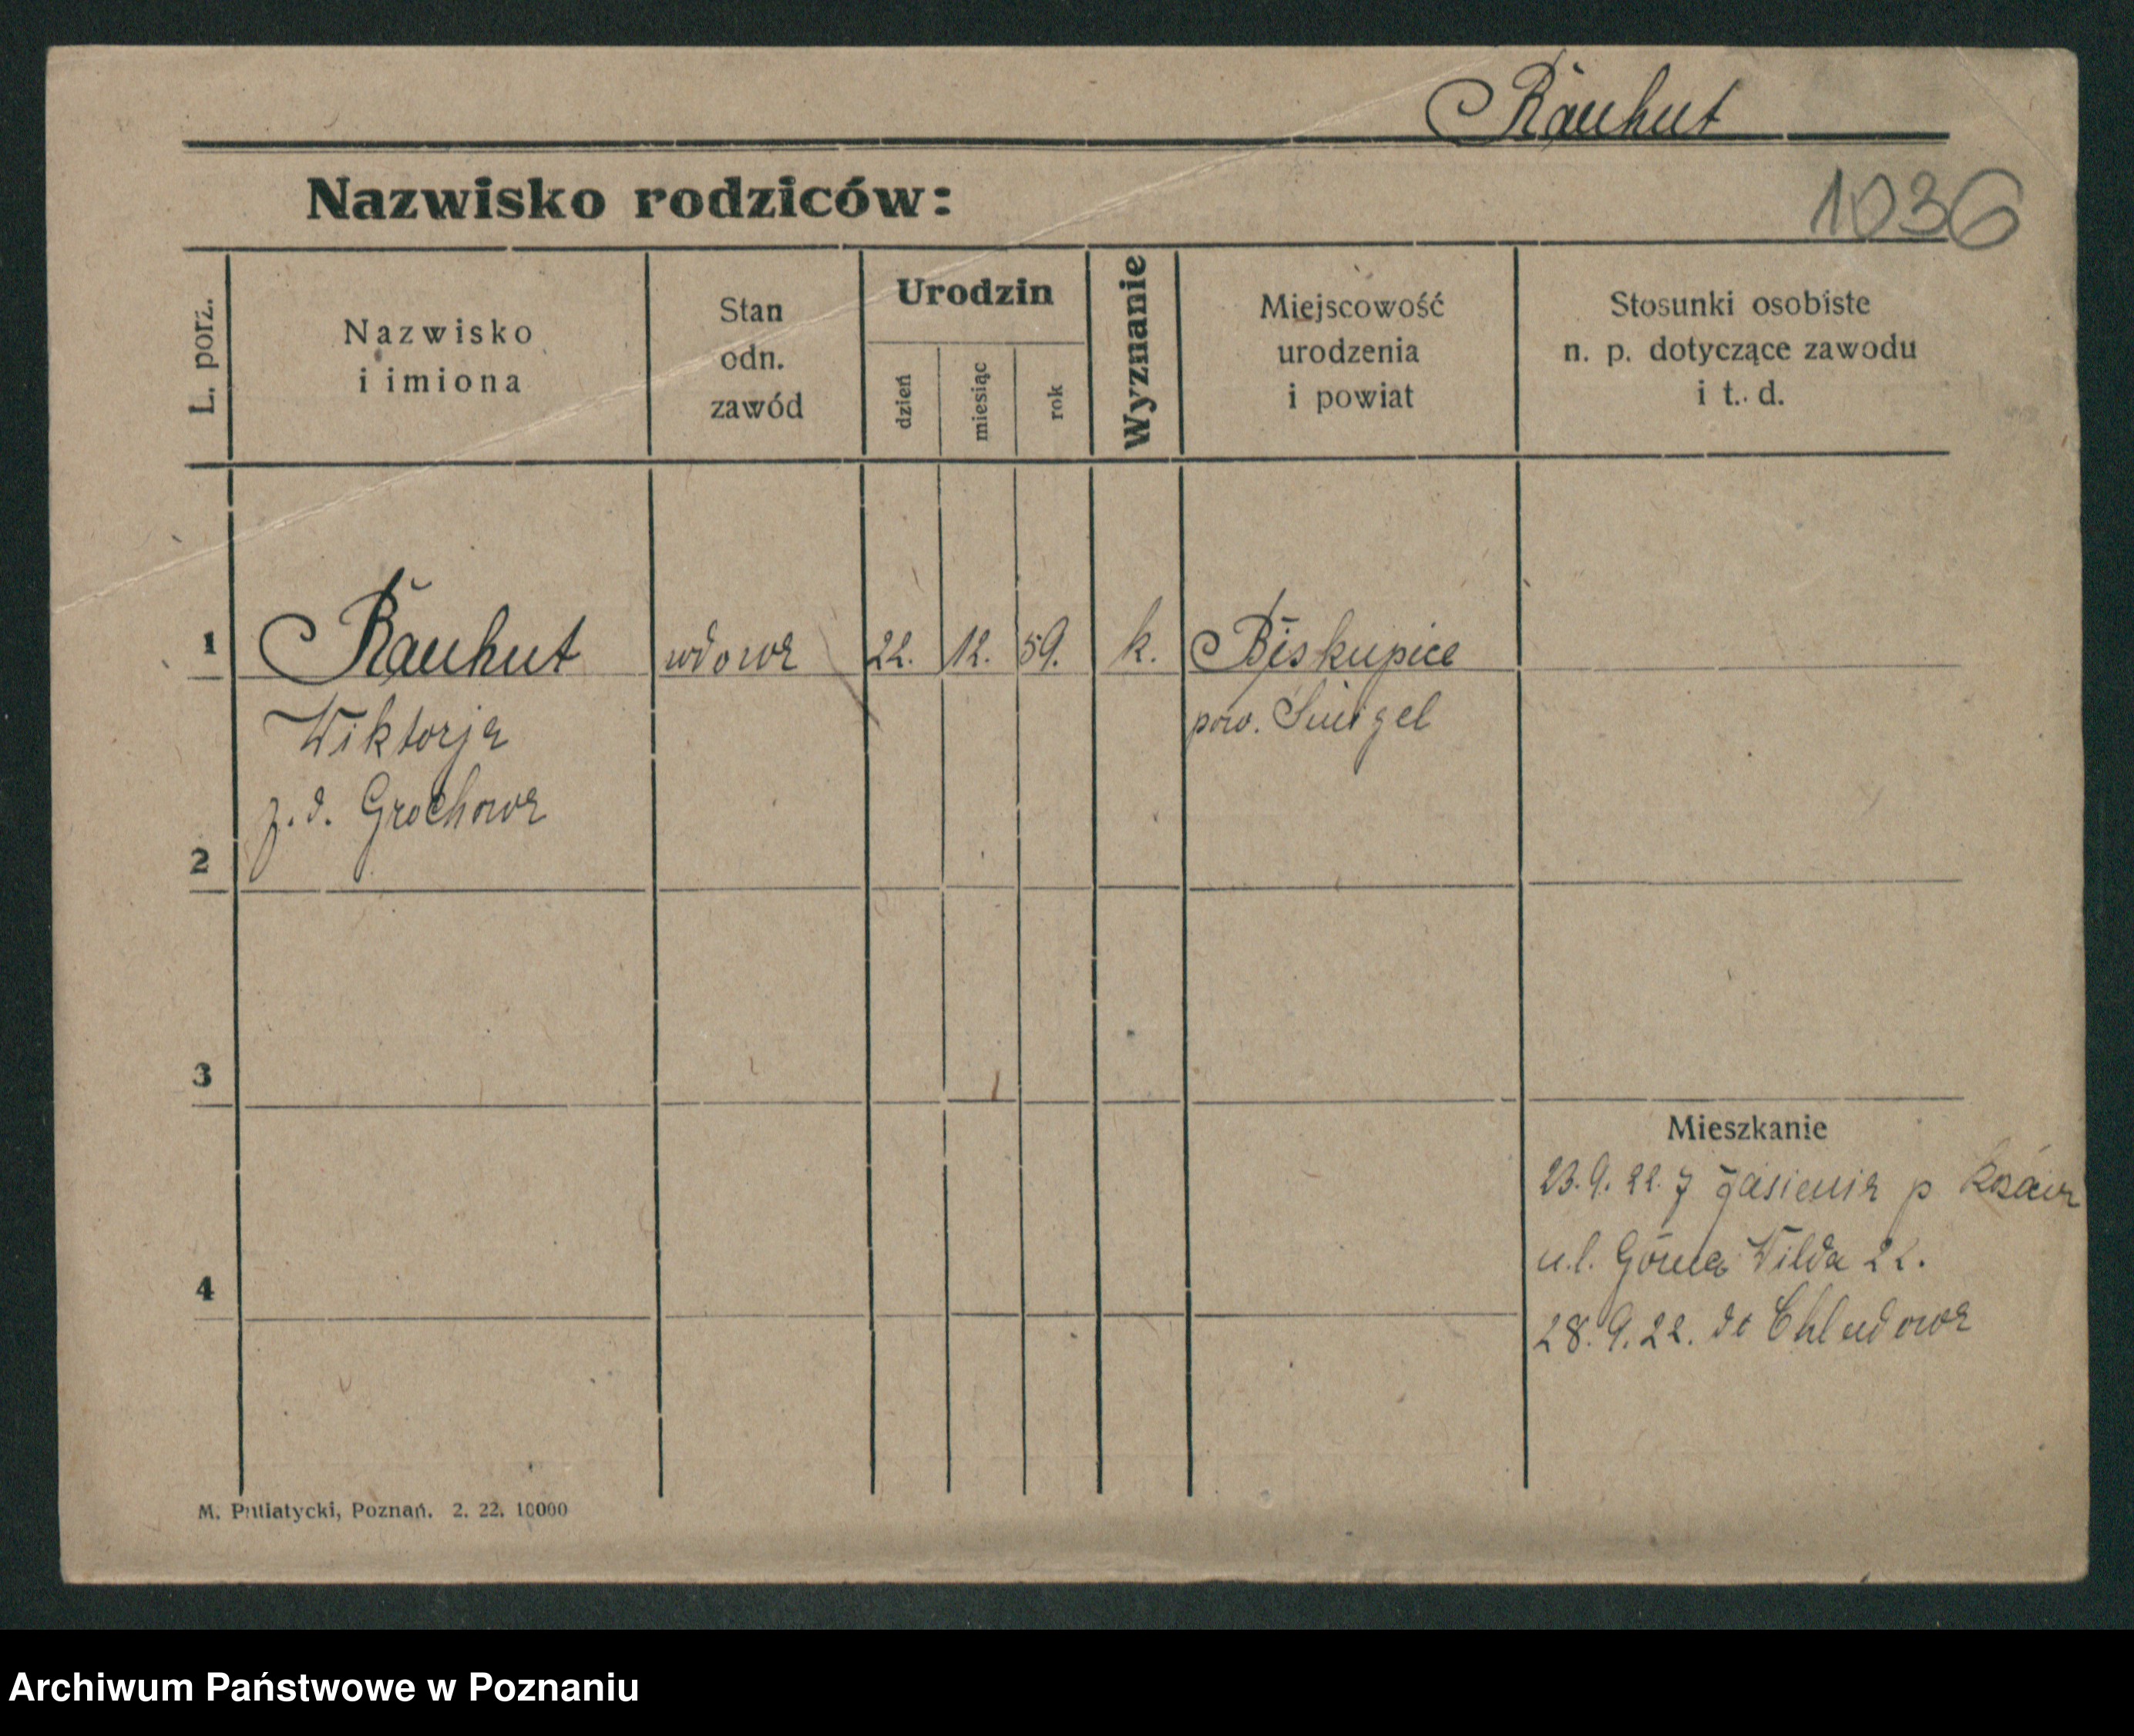 Rauhut
Nazwisko rodziców:
1036
L. porz.
Nazwisko
i imiona
Stan
odn.
zawód
Urodzin
dzień
miesiąc
rok
Wyznanie
Miejscowość
urodzenia
i powiat
Stosunki osobiste
n. p. dotyczące zawodu
i t. d.
1 Rauhut wdowa 22. 12. 59. k. Biskupice
Wiktorja pow. Śmigel
z. d. Grochowa
2
3
Mieszkanie
23. 9. 22. z Jasienia p
ul. Górna Wilda 22.
4
28. 9. 22. do Chludowa
M. Putiatycki, Poznań. 2. 22. 10000
Archiwum Państwowe w Poznaniu